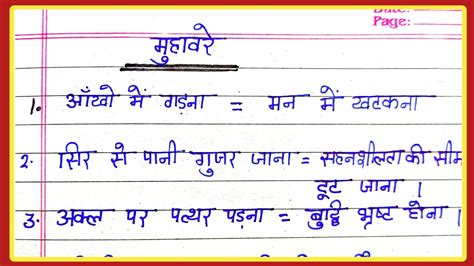 Page:
मुहावरे
1. आँखो में गड़ना = मन में खटकना
2. सिर से पानी गुजर जाना = सहनशीलता की सीम
टूट जाना ।
3. अक्ल पर पत्थर पड़ना = बुद्धि भ्रष्ट होना ।